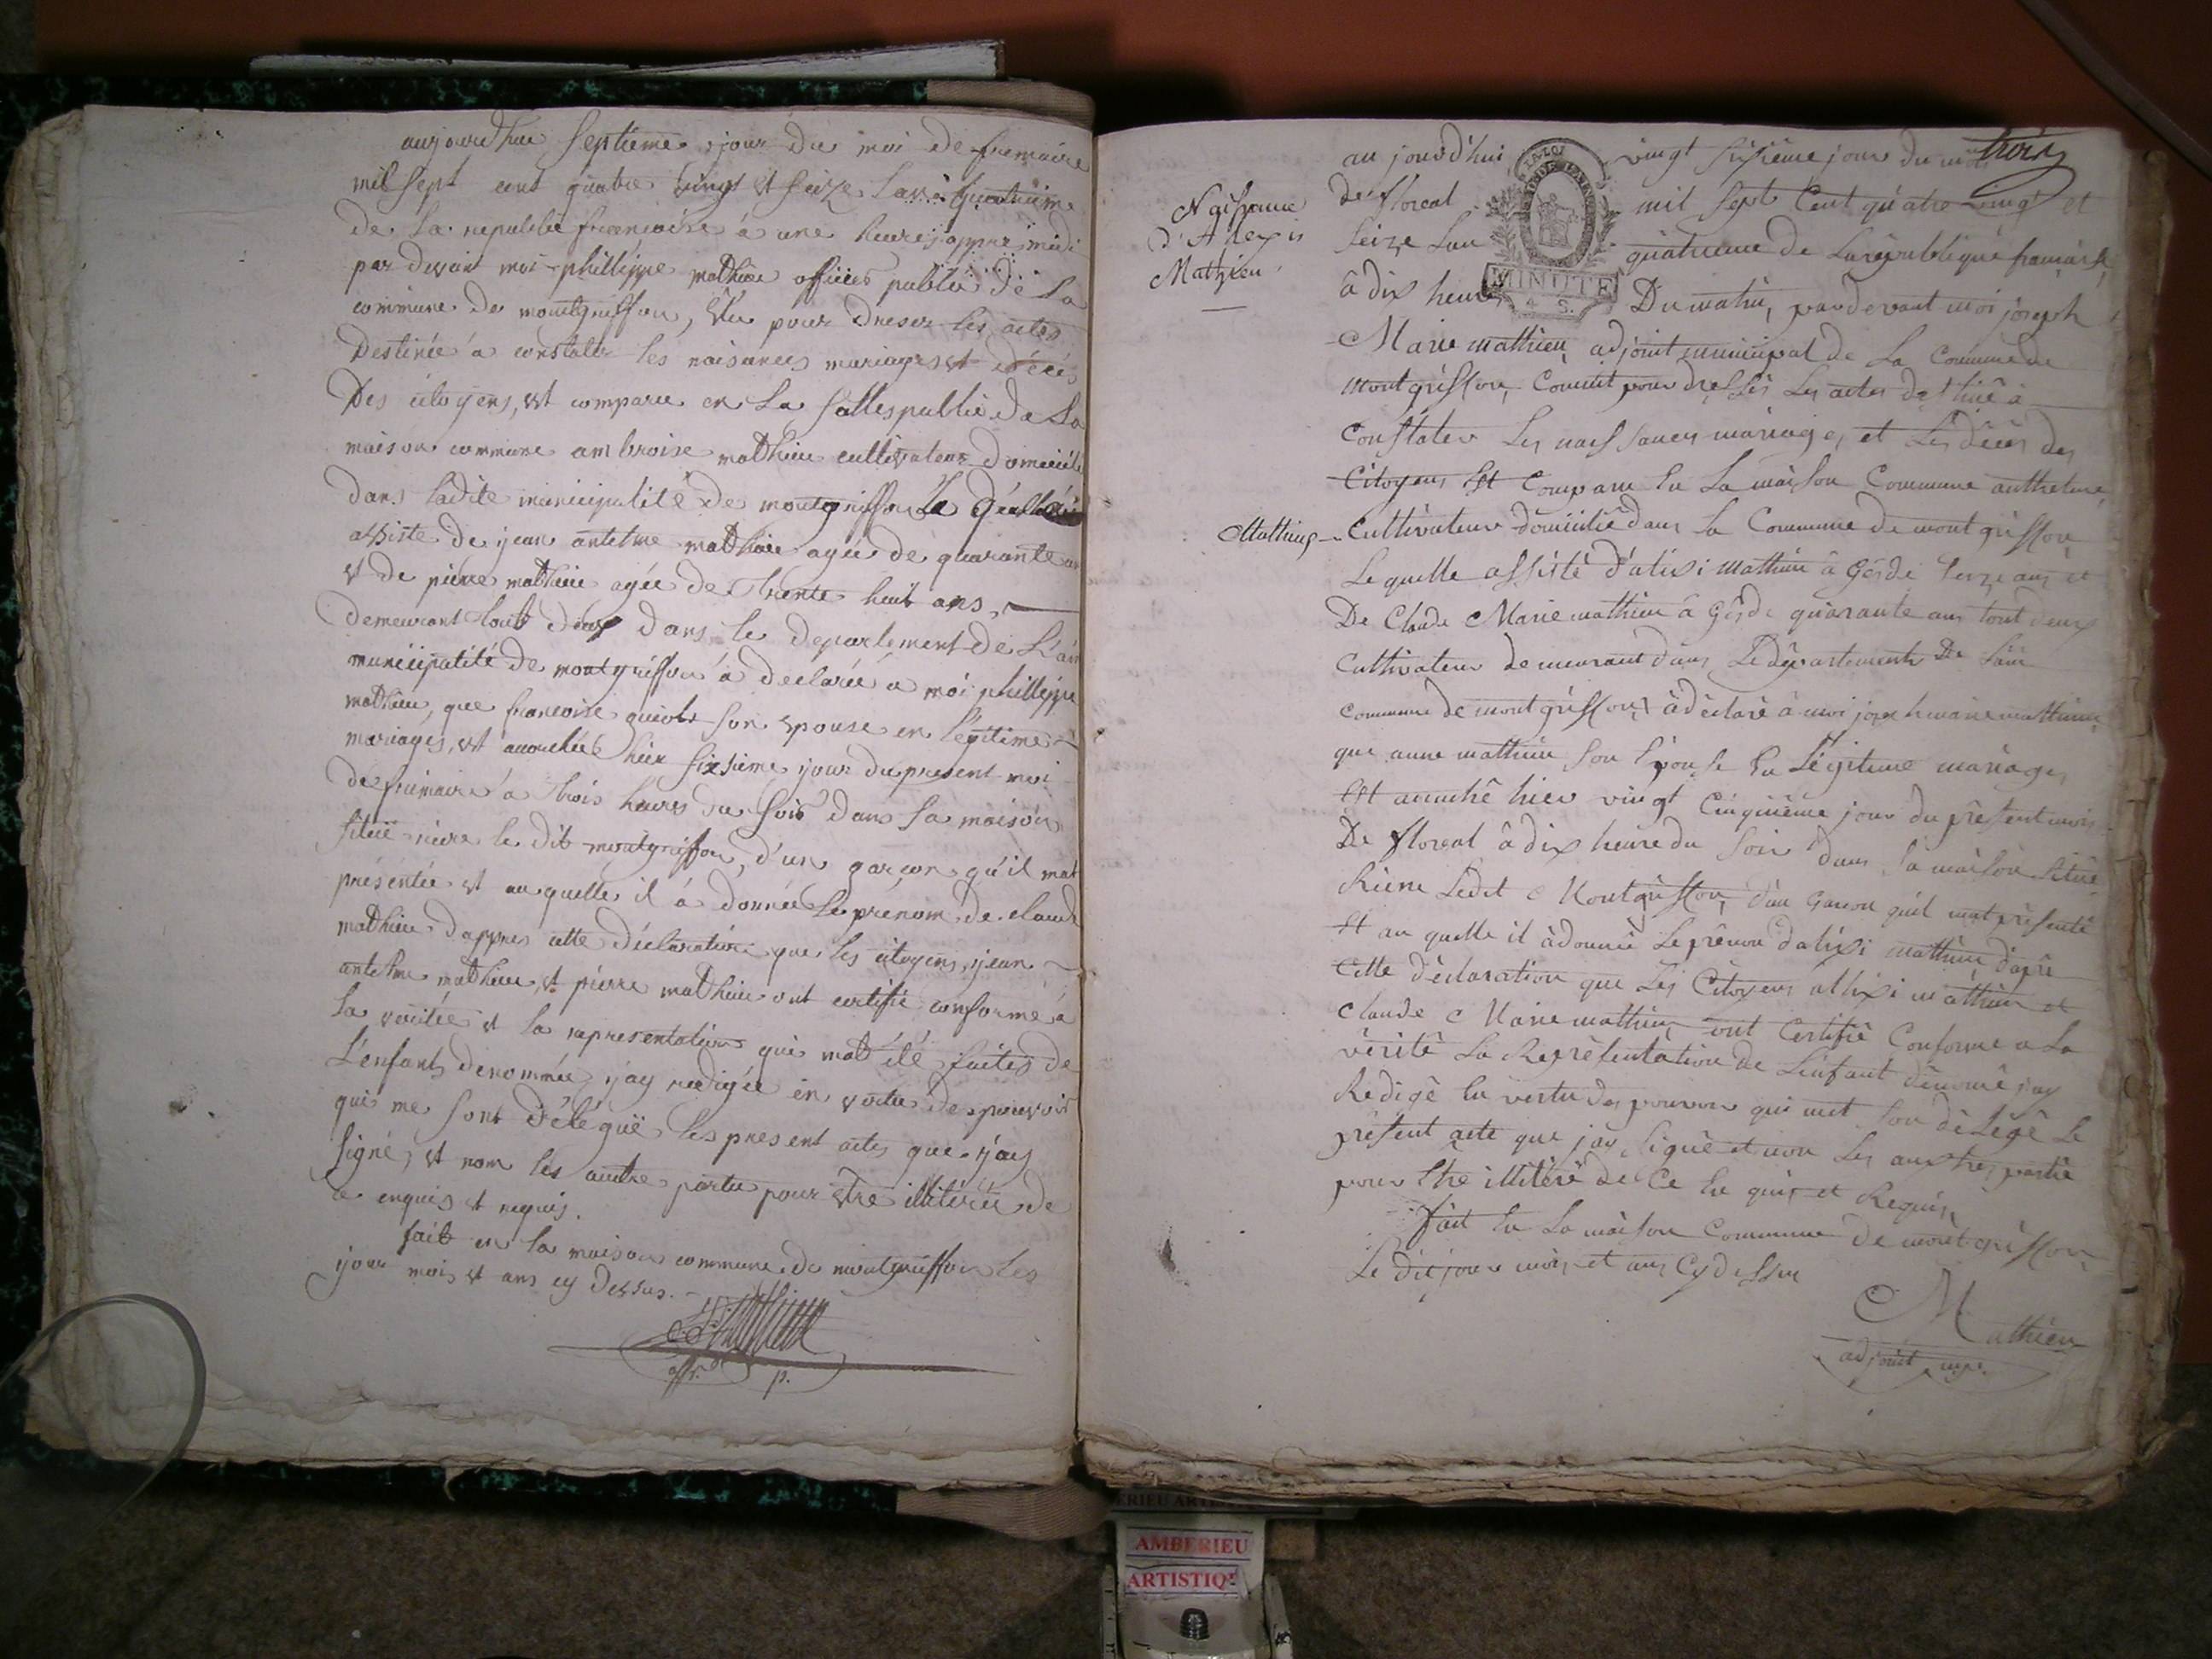 aujourdhui septieme jour du moi de frimaire
mil sept cent quatre vingt et seize lan quatrieme
de la republic francoise à une heures appre midi
par devant moi phillippe mathieu officier public de la
commune de montgriffon, élu pour dreser les actes
destinée a constater les naisances mariages et décés
des citoyens, est comparu en la salles public de la
maison commune ambroise mathieu cultivateur domicilié
dans ladite municipalité de montgriffon
assiste de jean antelme mathieu agée de quarante ans
et de pierre mathieu agée de trente huit ans,
demeurant tout deux dans le departement de l'ain
municipalité de montgriffon à déclarée a moi phillippe
mathieu, que francoise guiot son epouse en legitime
mariages, est acouchée hier sixsieme jour du present moi
de frimaire à trois heures du soir dans sa maison
situë riere le dit montgriffon, d'un garcon qu'il mat
présentée et au quelle il à donnée le prenom de claude
mathieu d'appres cette déclaration que les citoyens jean
antelme mathieu, et pierre mathieu ont certifié conforme à
la veritée et la representation qui mat été faites de
l'enfant denommée j'ay redigée en vertu des pouvoir
qui me sont déléguë les present actes que j'ay
signé, et non les autre partie pour etre illitérée de
ce enquis et requis.
fait en la maison commune de montgriffon les
jour mois et ans cy dessus.
off. p.
trois
Naissance
d'Alexis
Mathieu
LA LOI
MINUTE
4 S.
au jourd'hui vingt sixième jour du mois
de floreal mil sept cent quatre vingt et
seize lan quatrieme de la republique francaise
à dix heure du matin, par devant moi joseph
Marie mathieu adjoint municipal de la commune de
montgriffon, commit pour dressés les actes destiné à
constater les naissances mariages et les décés des
citoyens est comparu en la maison commune anthelme
Mathieu cultivateur domicilié dans la commune de montgriffon
lequelle assisté d'alixi mathieu âgé de seize ans et
de claude Marie mathieu âgé de quarante ans tout deux
cultivateur demeurant dans le département de l'ain
commune de montgriffon, à déclaré à moi joseph marie mathieu
que anne mathieu son épouse en légitime mariages
est acouché hier vingt cinquième jour du présent mois
de floreal à dix heure du soir dans sa maison située
riere ledit Montgriffon, d'un garcon quil mat présenté
et au quelle il à donnée le prénom d'alixi mathieu d'aprè
cette déclaration que les citoyens alixi mathieu et
claude Marie mathieu ont certifié conforme a la
vérité la représentation de l'enfant dénomé jay
redigé en vertu des pouvoir qui met son délégé le
présent acte que jay signé et non les auxtres partie
pour être illitéré de ce en quis et requis
fait en la maison commune de montgriffon
le dit jour mois et ans cy dessu
Mathieu
adjoint mpl.
AMBERIEU
ARTISTIQ